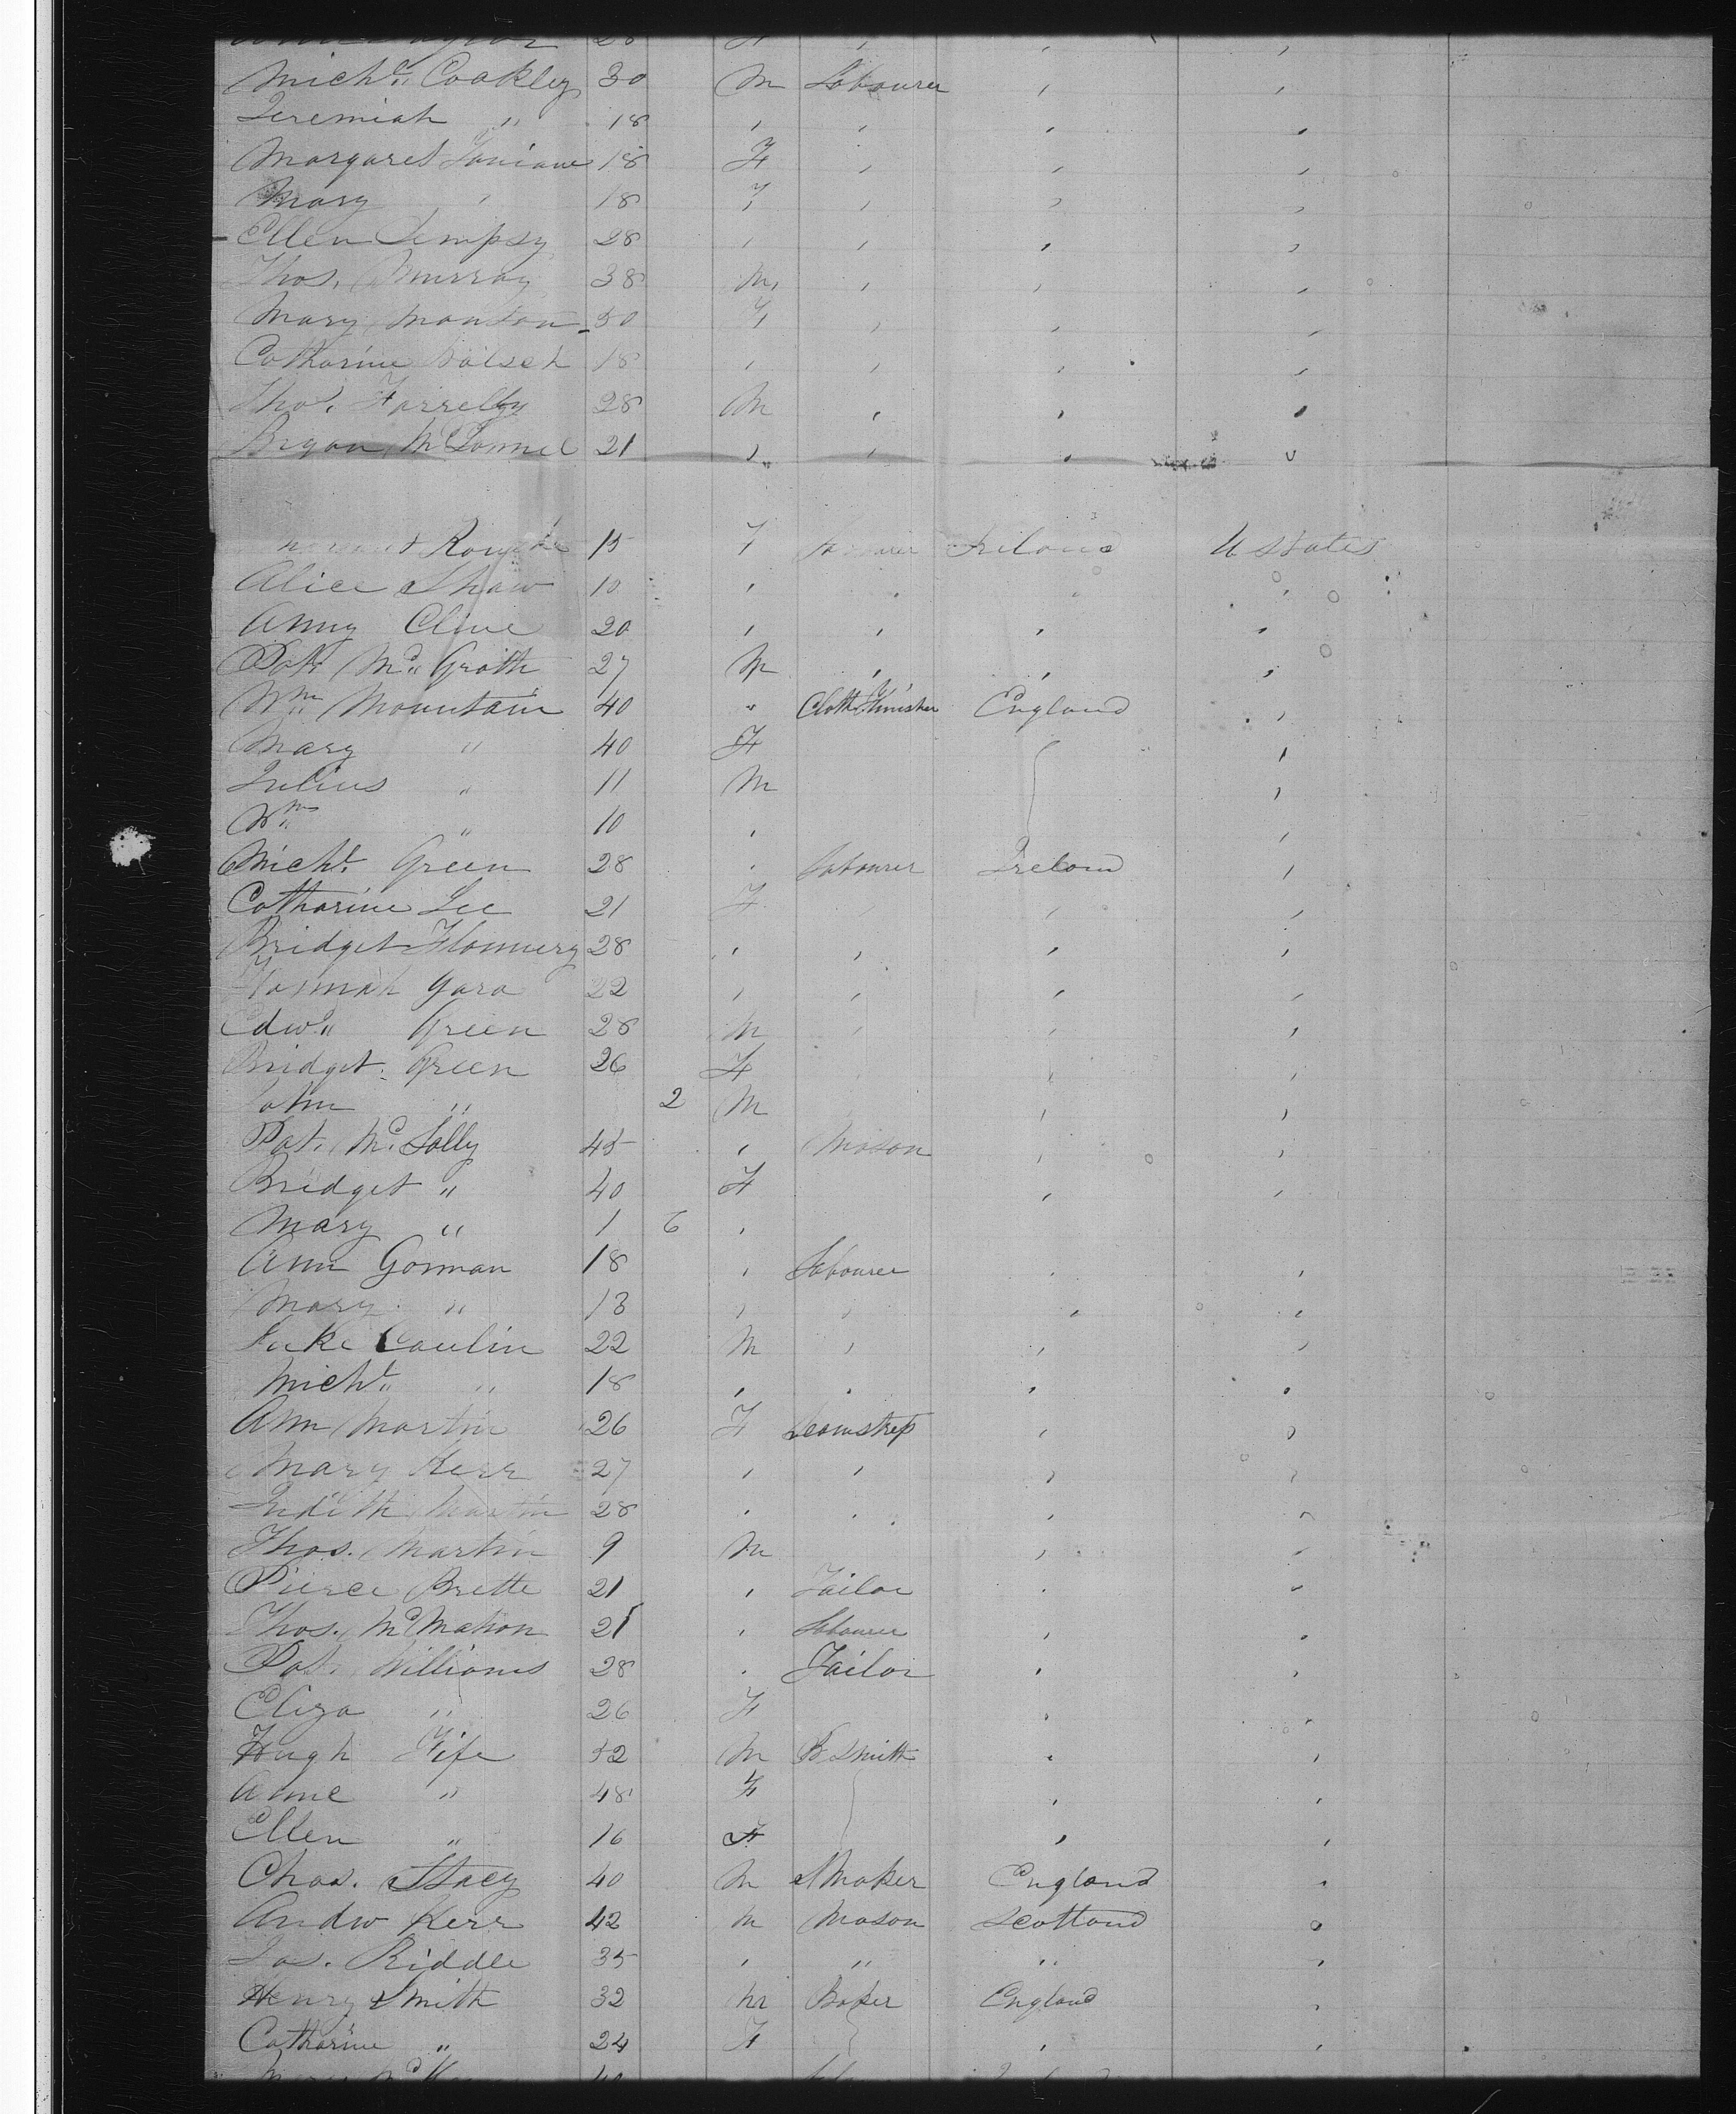 Mich.l Coakley 30 M Labourer , ,
Jeremiah " 18 , , , ,
Margaret 18 F , , ,
Mary , 18 F , , ,
Ellen Dempsy 28 , , , ,
Thos. Murray 38 M , , ,
Mary 50 F , , ,
Catharine 18 , , , ,
Thos. Farrelly 28 M , , ,
Bryan 21 , , , ,
15 F Labourer Ireland U States
Alice Shaw 10 , , , ,
Anny Clive 20 , , , ,
Pat. Mc Grath 27 M , , ,
Wm Mountain 40 " Cloth Finisher England ,
Mary " 40 F ,
Julius " 11 M ,
Wm " 10 , ,
Michl. Green 28 , Labourer Ireland ,
Catharine Lee 21 F , , ,
Bridget Flannery 28 , , , ,
Hannah Gara 22 , , , ,
Edwd. Green 28 M , , ,
Bridget. Green 26 F , ,
John " 2 M , ,
Pat. Mc. Lolly 45 , Mason , ,
Bridget " 40 F , ,
Mary " 1 6 ,
Ann Gorman 18 , Labourer , ,
Mary " 13 , , , ,
Luke Caulin 22 M , , ,
Michl. " 18 , , , ,
Ann Martin 26 F Seamstress , ,
Mary Kerr 27 , , , ,
Judith Martin 28 , , , ,
Thos. Martin 9 M , ,
Pierce Brette 21 , Tailor , ,
Thos. McMahon 21 , Labourer , ,
Pat. Williams 28 , Tailor , ,
Eliza " 26 F , ,
Hugh Fife 52 M B Smith , ,
Anne " 48 F , ,
Ellen " 16 F , ,
Chas. Stacy 40 M S Maker England ,
Andw Kerr 42 M Mason Scotland ,
Jas. Riddle 35 , " " ,
Henry Smith 32 M Baker England ,
Catharine " 24 F , ,